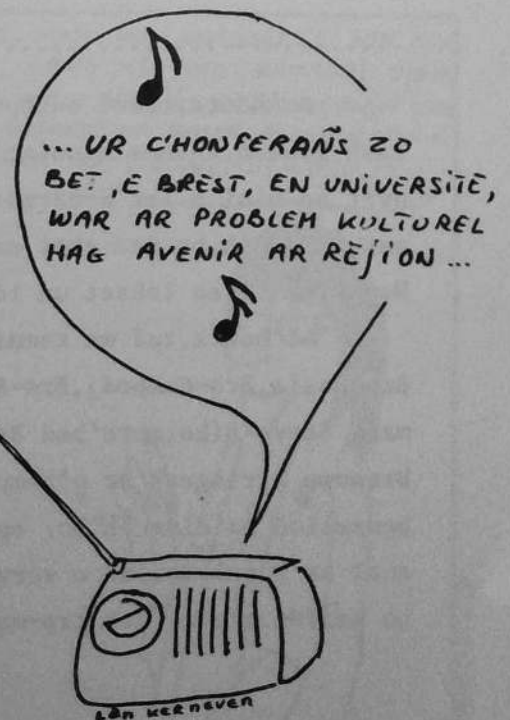 ... UR C'HONFERAÑS ZO
BET, E BREST, EN UNIVERSITÉ,
WAR AR PROBLEM KULTUREL
HAG AVENIR AR RÉJION ...
LAN KERNEVEN